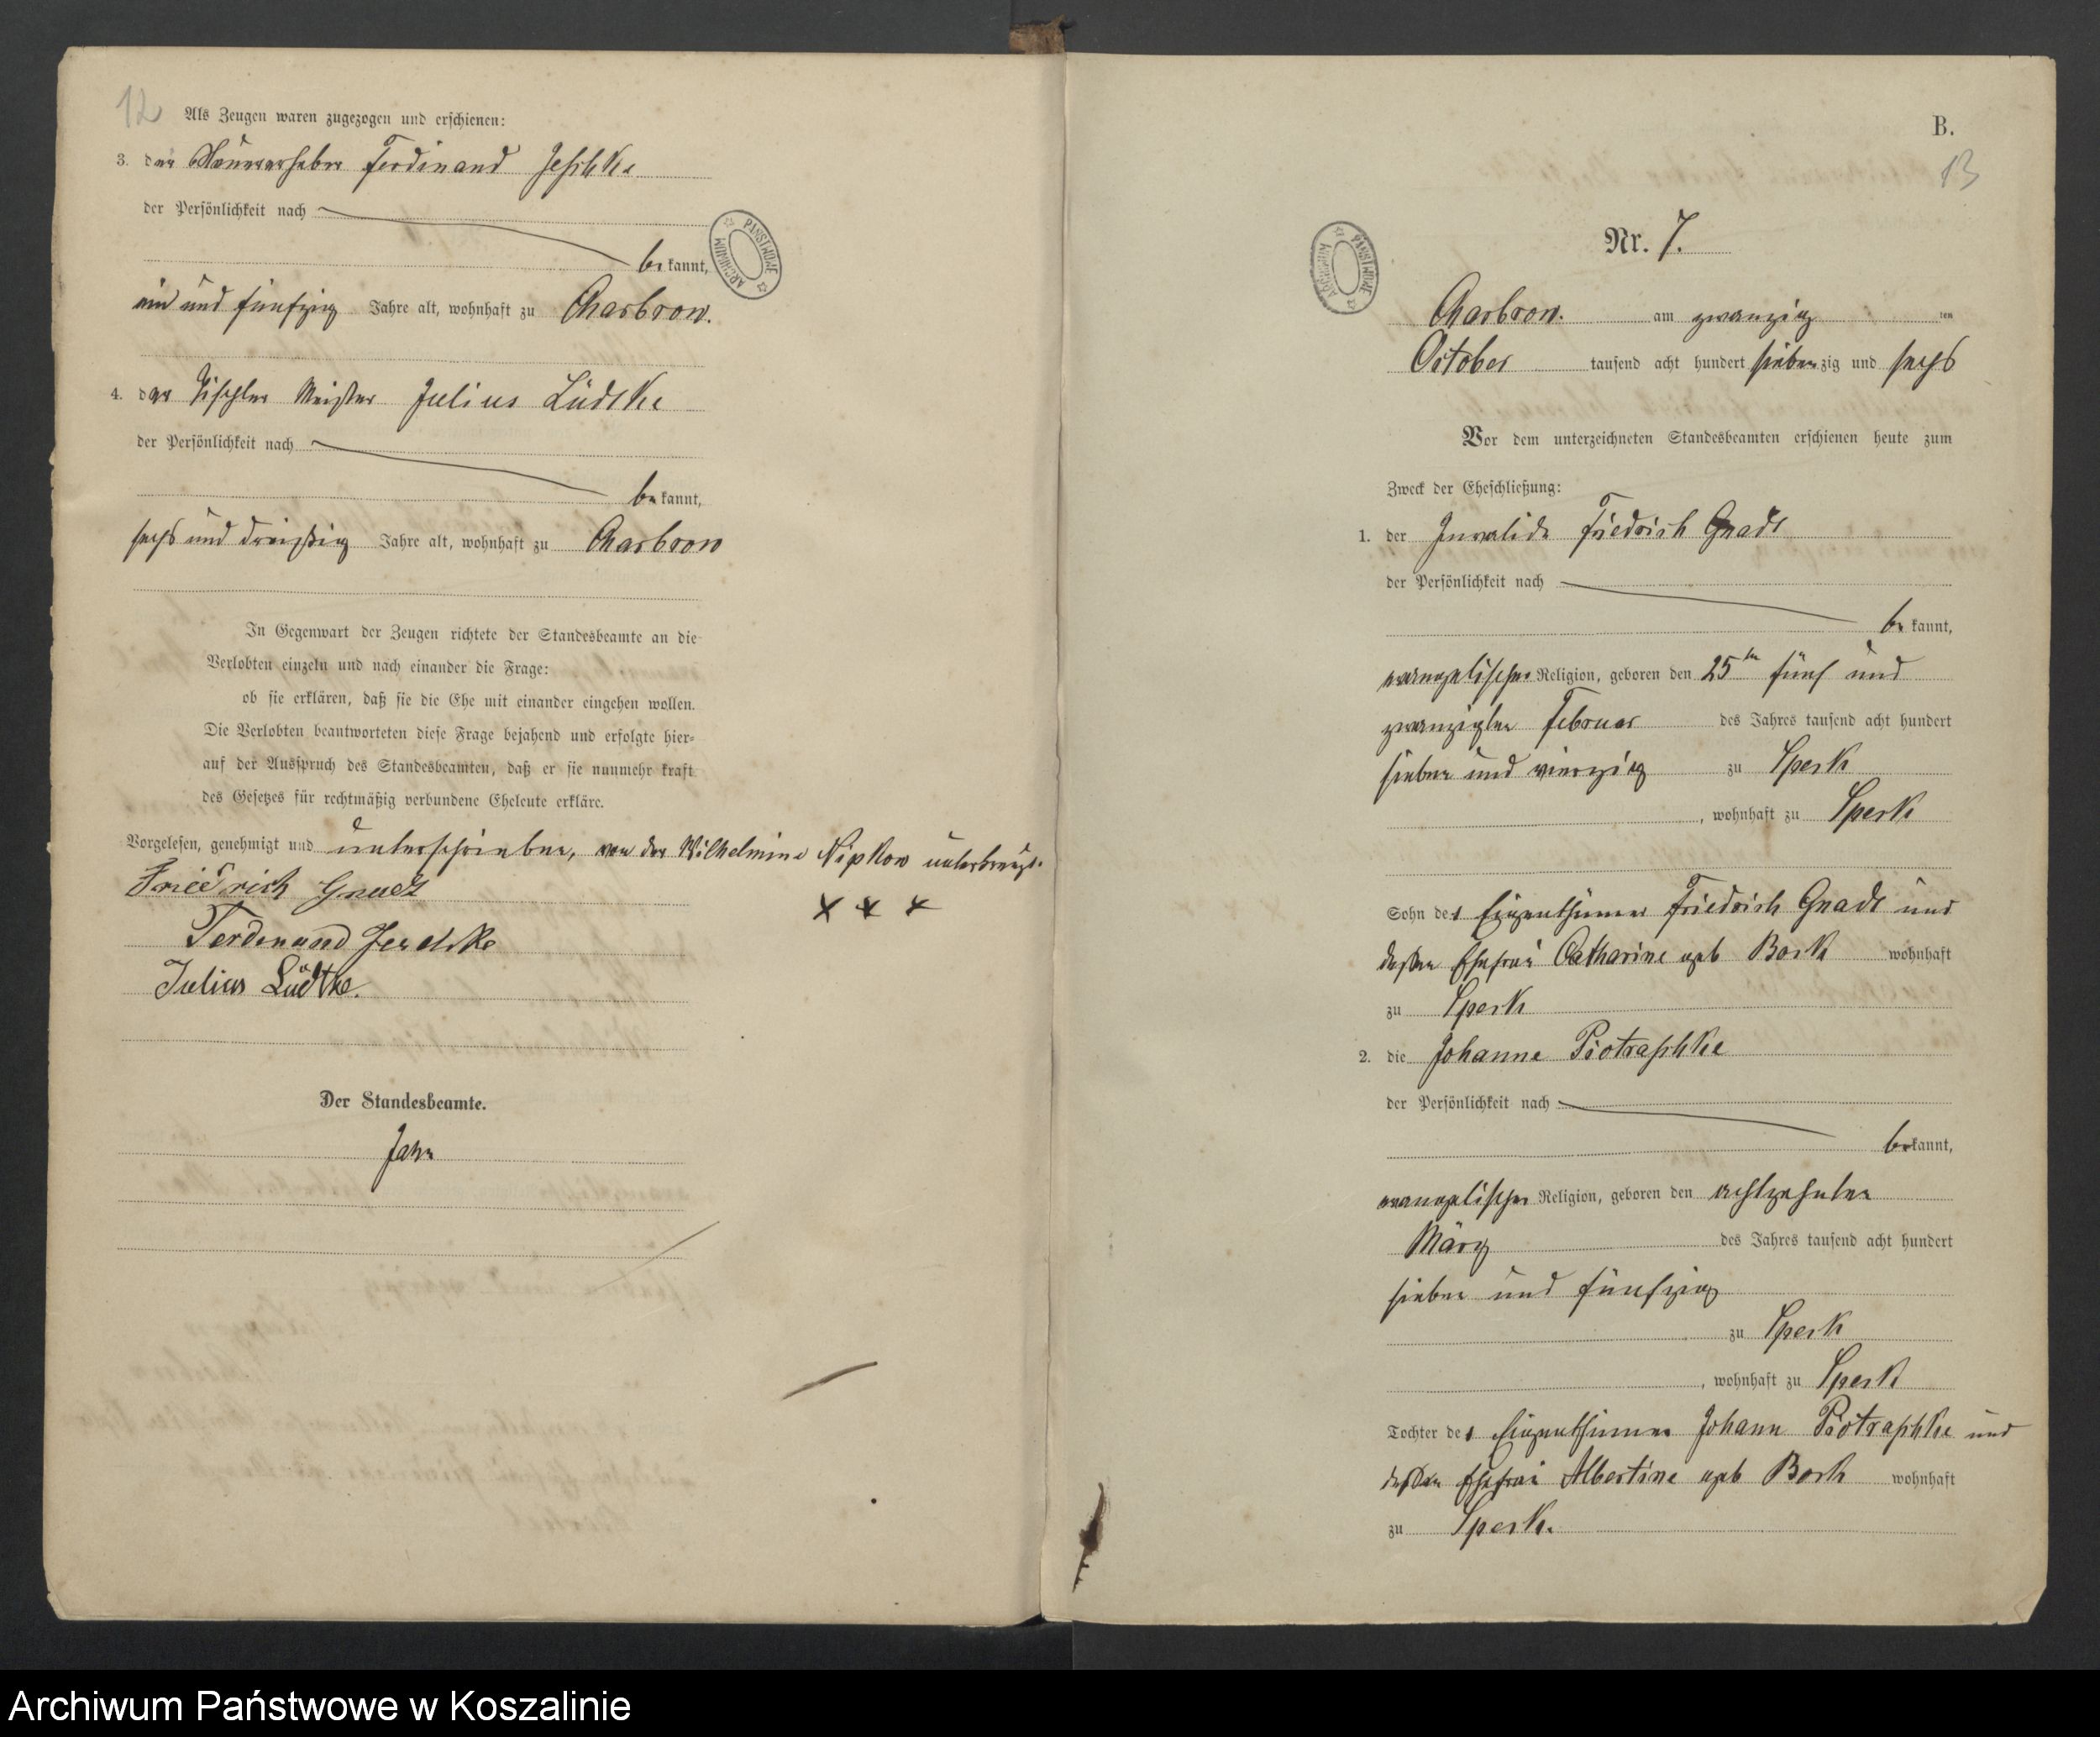 12
Als Zeugen waren zugezogen und erschienen:
3. der Ferdinand Jeschke
der Persönlichkeit nach
be kannt,
ein und fünfzig Jahre alt, wohnhaft zu Charbrow.
4. der Tischler Meister Julius Lüdtke
der Persönlichkeit nach
be kannt,
sechs und dreißig Jahre alt, wohnhaft zu Charbrow
In Gegenwart der Zeugen richtete der Standesbeamte an die
Verlobten einzeln und nach einander die Frage:
ob sie erklären, daß sie die Ehe mit einander eingehen wollen.
Die Verlobten beantworteten diese Frage bejahend und erfolgte hier-
auf der Ausspruch des Standesbeamten, daß er sie nunmehr kraft
des Gesetzes für rechtmäßig verbundene Eheleute erkläre.
Vorgelesen, genehmigt und unterschrieben, von der Wilhelmine Nipkow unterkreuzt.
Friedrich
+ + +
Ferdinand
Julius Lüdtke.
Der Standesbeamte.
ARCHIWUM PAŃSTWOWE
B.
13
Nr. 7.
ARCHIWUM PAŃSTWOWE
Charbrow. am zwanzig ten
October tausend acht hundert siebenzig und sechs
Vor dem unterzeichneten Standesbeamten erschienen heute zum
Zweck der Eheschließung:
1. der Invalide Friedrich Gnadt
der Persönlichkeit nach
be kannt,
evangelischer Religion, geboren den 25ten fünf und
zwanzigten Februar des Jahres tausend acht hundert
sieben und vierzig zu Speck
, wohnhaft zu Speck
Sohn des Eigenthümer Friedrich Gnadt und
dessen Ehefrau Catharine geb Bork wohnhaft
zu Speck
2. die Johanne Piotraschke
der Persönlichkeit nach
be kannt,
evangelischer Religion, geboren den achtzehnten
März des Jahres tausend acht hundert
sieben und fünfzig
zu Speck
, wohnhaft zu Speck
Tochter des Eigenthümer Johann Piotraschke und
dessen Ehefrau Albertine geb Bork wohnhaft
zu Speck.
Archiwum Państwowe w Koszalinie